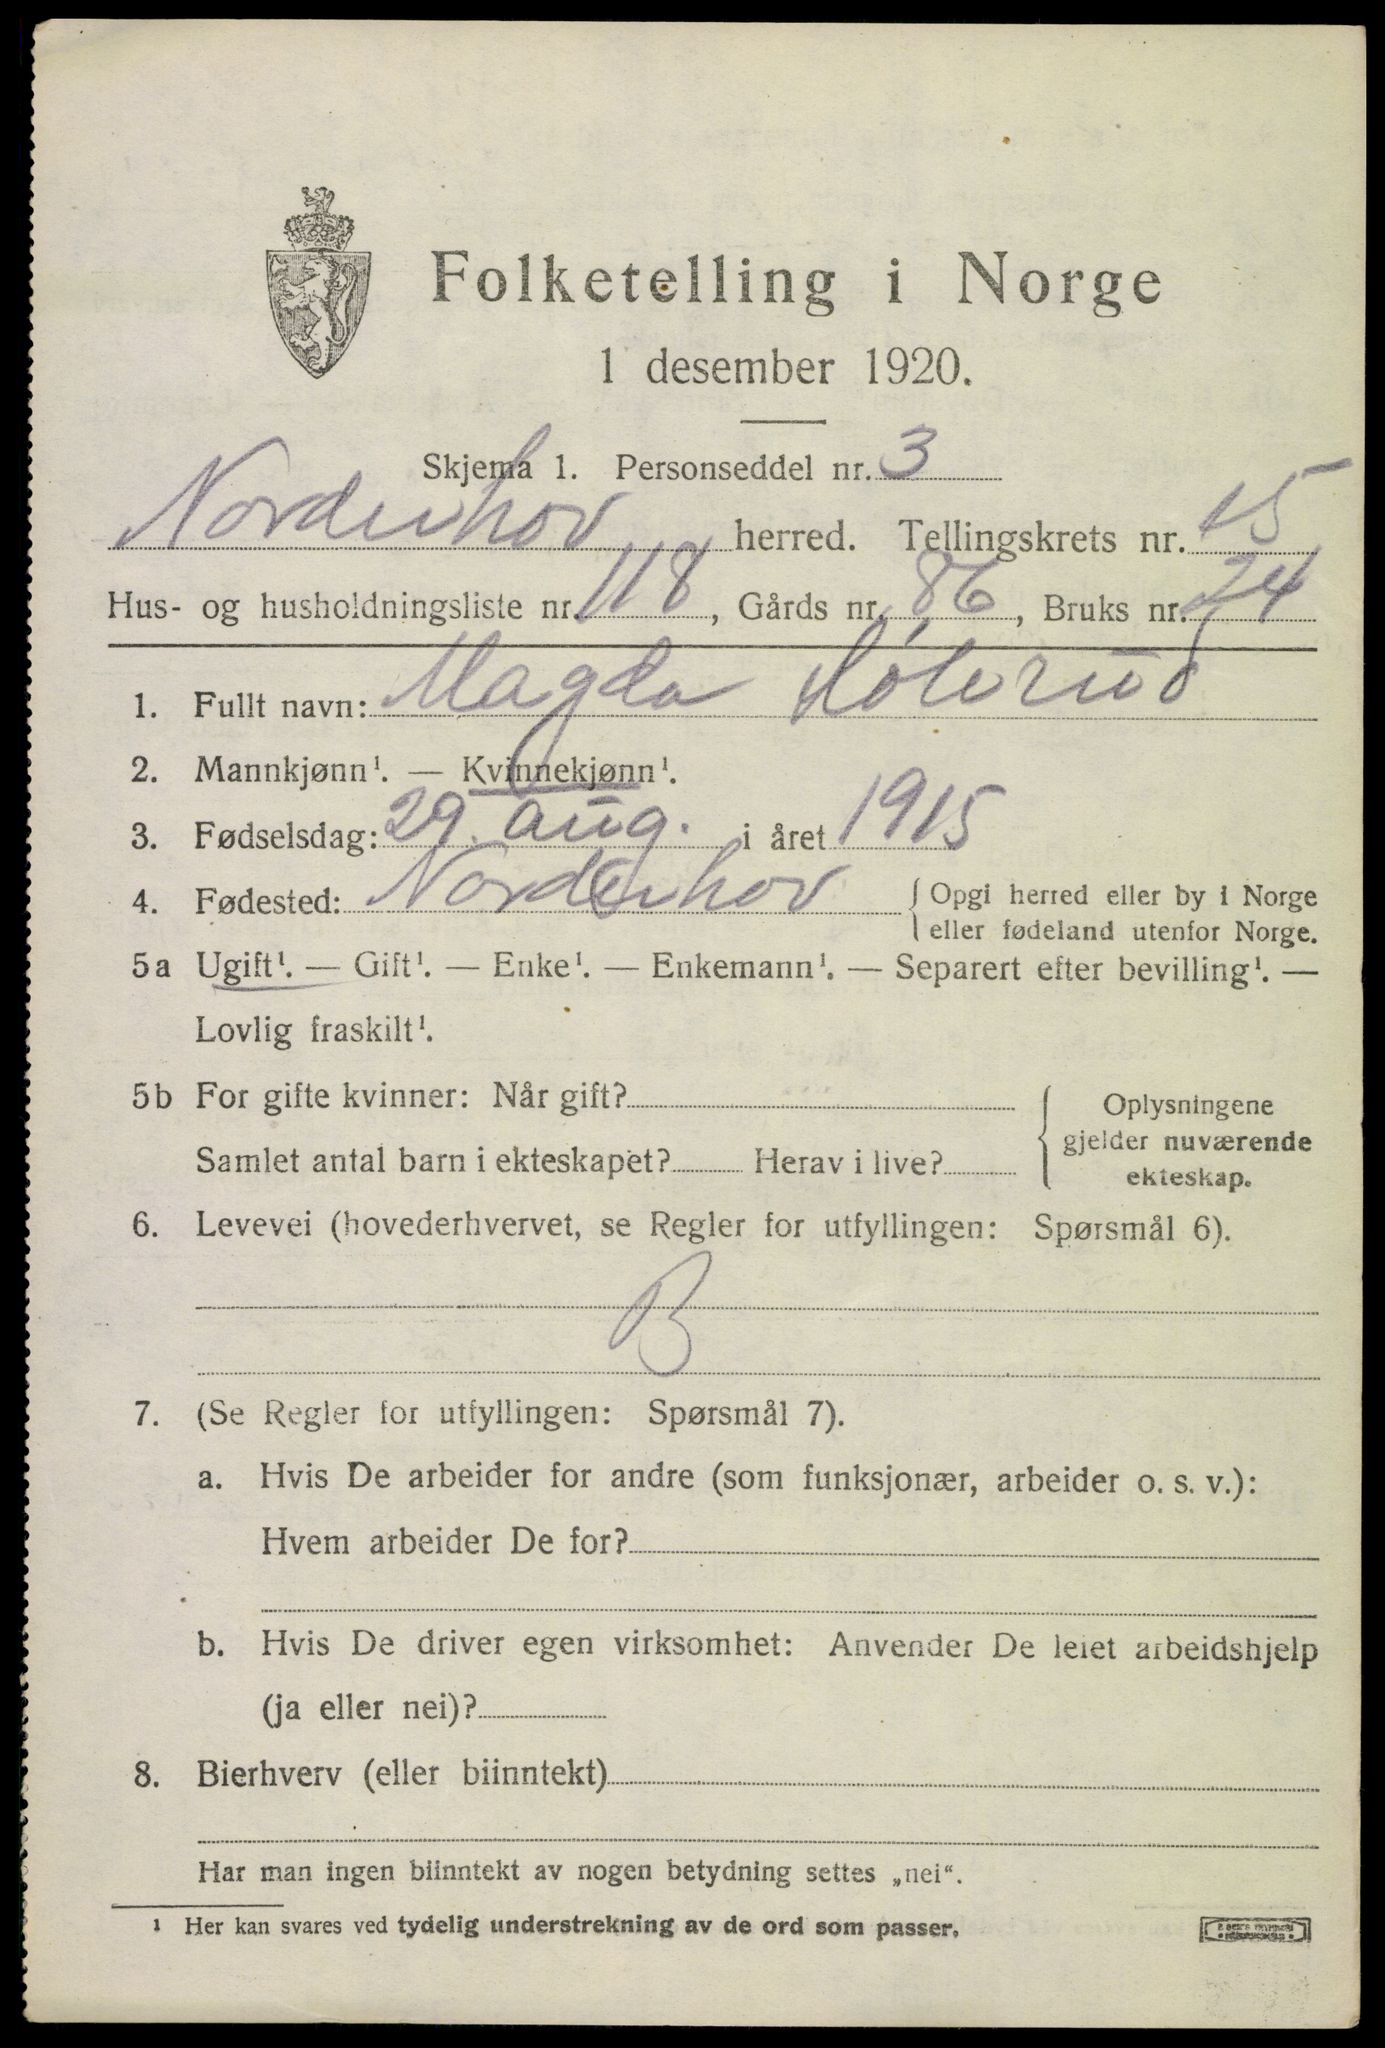 Folketelling i Norge
1 desember 1920.
Skjema 1. Personseddel nr. 3
Norderhov herred. Tellingskrets nr. 15
Hus- og husholdningsliste nr. 118, Gårds nr. 86, Bruks nr. 24
1. Fullt navn: Magda
2. Mannkjønn¹. — Kvinnekjønn¹.
3. Fødselsdag: 29. aug. i året 1915
4. Fødested: Norderhov { Opgi herred eller by i Norge
eller fødeland utenfor Norge.
5a Ugift¹. — Gift¹. — Enke¹. — Enkemann¹. — Separert efter bevilling¹. —
Lovlig fraskilt¹.
5b For gifte kvinner: Når gift?
Samlet antal barn i ekteskapet? Herav i live?
{ Oplysningene
gjelder nuværende
ekteskap.
6. Levevei (hovederhvervet, se Regler for utfyllingen: Spørsmål 6).
B
7. (Se Regler for utfyllingen: Spørsmål 7).
a. Hvis De arbeider for andre (som funksjonær, arbeider o. s. v.):
Hvem arbeider De for?
b. Hvis De driver egen virksomhet: Anvender De leiet arbeidshjelp
(ja eller nei)?
8. Bierhverv (eller biinntekt)
Har man ingen biinntekt av nogen betydning settes „nei“.
¹ Her kan svares ved tydelig understrekning av de ord som passer.